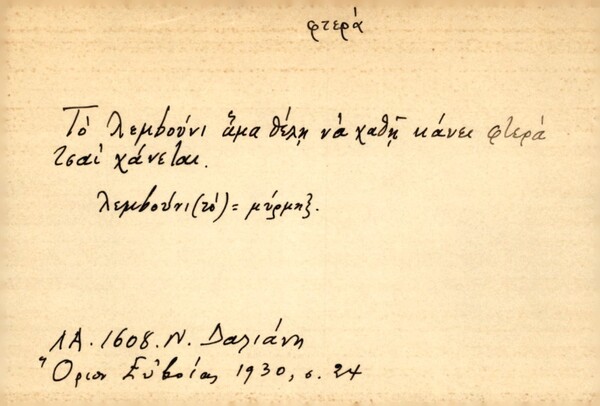 φτερά
Τὸ λεμβούνι ἅμα θέλῃ νὰ χαθῇ κάνει φτερά
τσαὶ χάνεται.
λεμβούνι (τὸ) = μύρμηξ.
ΛΑ. 1608. Ν. Δαλιάνη
Ὅριον Εὐβοίας 1930, σ. 24